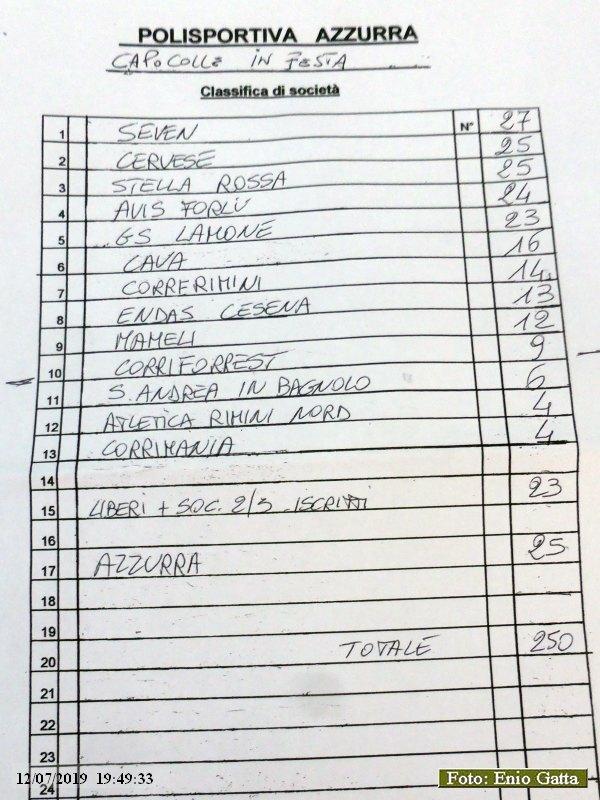 POLISPORTIVA AZZURRA
CAPOCOLLE IN FESTA
Classifica di società
1 SEVEN N° 27
2 CERVESE 25
3 STELLA ROSSA 25
4 AVIS FORLÌ 24
5 GS LAMONE 23
6 CAVA 16
7 CORRERIMINI 14
8 ENDAS CESENA 13
9 MAMELI 12
10 CORRIFORREST 9
11 S. ANDREA IN BAGNOLO 6
12 ATLETICA RIMINI NORD 4
13 CORRIMANIA 4
14
15 LIBERI + SOC. 2/3 ISCRITTI 23
16
17 AZZURRA 25
18
19
20 TOTALE 250
21
22
23
24
12/07/2019 19:49:33
Foto: Enio Gatta